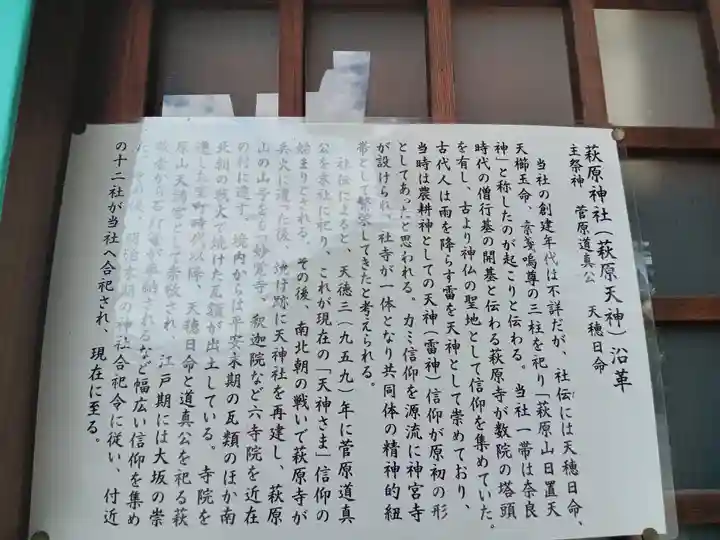 萩原神社（萩原天神）沿革
主祭神　菅原道真公　天穂日命
当社の創建年代は不詳だが、社伝には天穂日命、
天櫛玉命、素戔嗚尊の三柱を祀り「萩原山日置天
神」と称したのが起こりと伝わる。当社一帯は奈良
時代の僧行基の開基と伝わる萩原寺が数院の塔頭
を有し、古より神仏の聖地として信仰を集めていた。
古代人は雨を降らす雷を天神として崇めており、
当時は農耕神としての天神（雷神）信仰が原初の形
としてあったと思われる。カミ信仰を源流に神宮寺
が設けられ、社寺が一体となり共同体の精神的紐
帯として繁栄してきたと考えられる。
社伝によると、天徳三（九五九）年に菅原道真
公を本社に祀り、これが現在の「天神さま」信仰の
始まりとされる。その後、南北朝の戦いで萩原寺が
兵火に遭った後、焼け跡に天神社を再建し、萩原
山の山号をもつ妙覚寺、釈迦院など六寺院を近在
の村に遷す。境内からは平安末期の瓦類のほか南
北朝の戦火で焼けた瓦類が出土している。寺院を
遷した室町時代以降、天穂日命と道真公を祀る萩
原山天満宮として崇敬され、江戸期には大坂の崇
敬者から が奉納されるなど幅広い信仰を集め
た。 明治末期の神社合祀令に従い、付近
の十二社が当社へ合祀され、現在に至る。